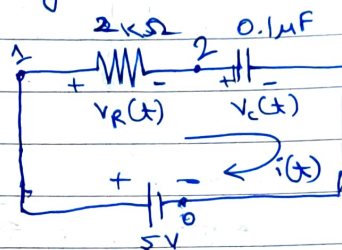 2KΩ 0.1μF
1 2
+ - + -
VR(t) Vc(t)
+ - i(t)
0
5V